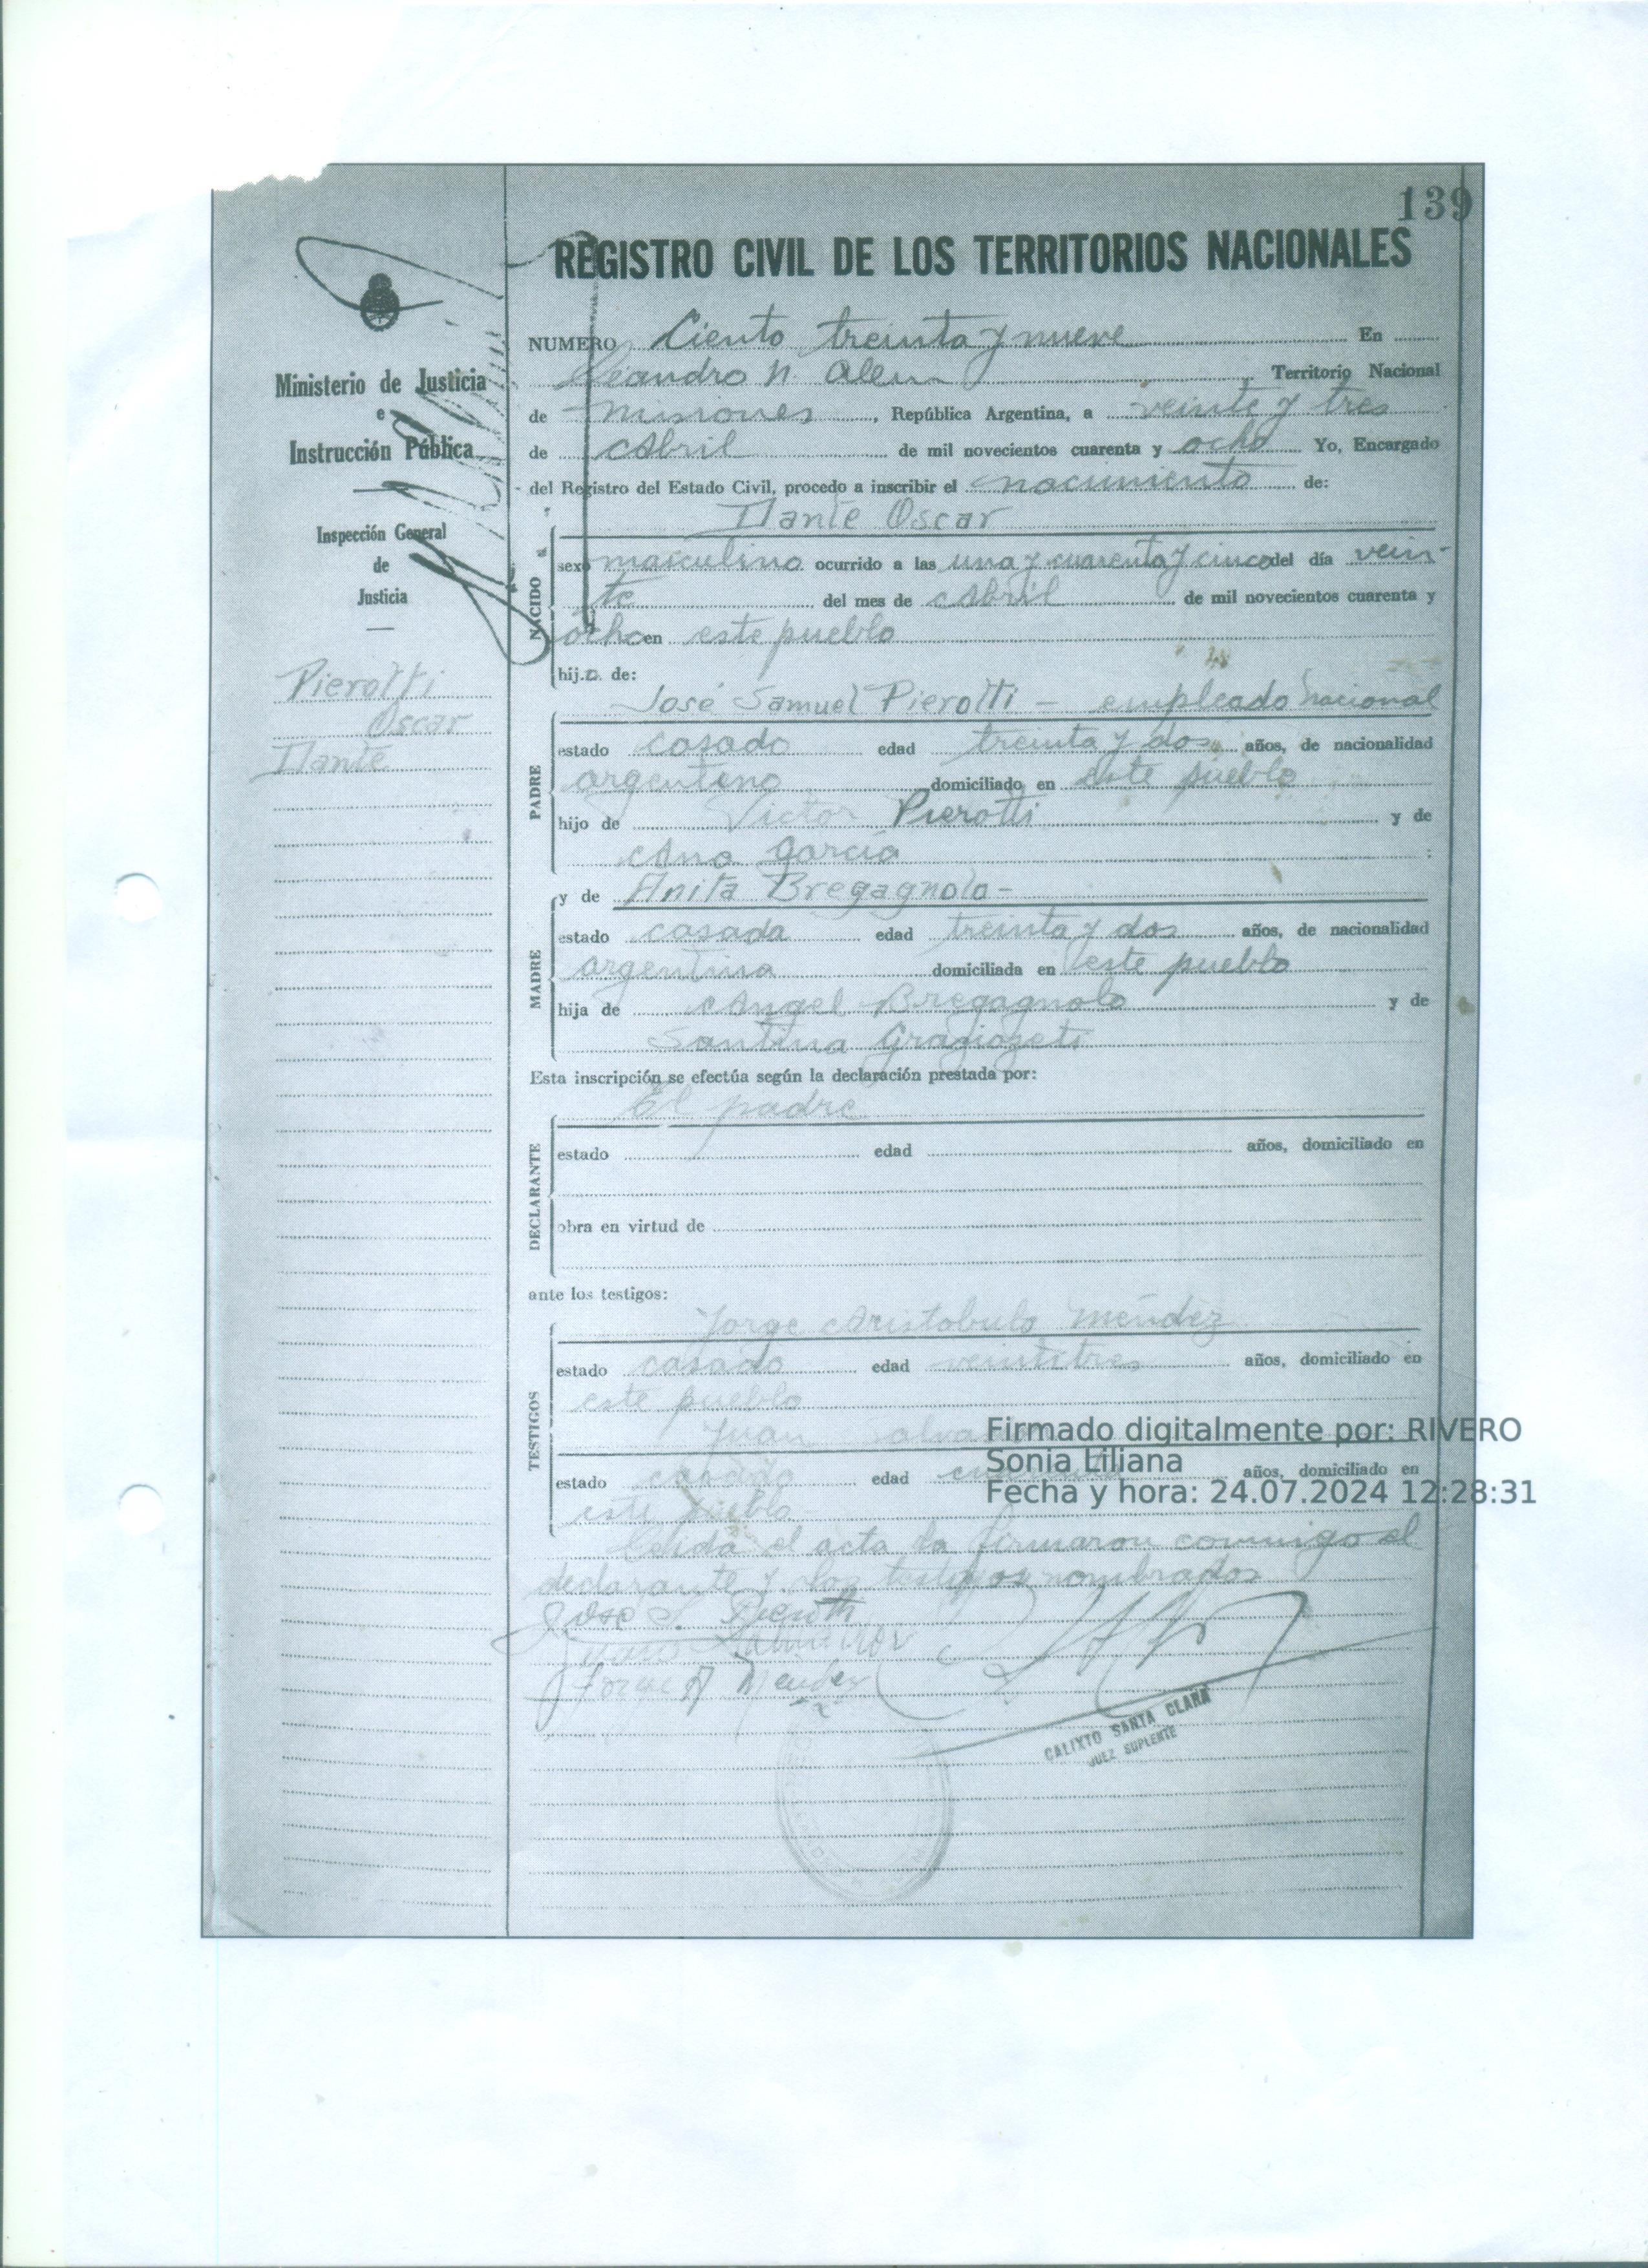 139
REGISTRO CIVIL DE LOS TERRITORIOS NACIONALES
Ministerio de Justicia
e
Instrucción Pública
Inspección General
de
Justicia
Pierotti
Oscar
Dante
NUMERO Ciento treinta y nueve En
Leandro N. Alem Territorio Nacional
de Misiones, República Argentina, a veinte y tres
de Abril de mil novecientos cuarenta y ocho Yo, Encargado
del Registro del Estado Civil, procedo a inscribir el nacimiento de:
Dante Oscar
NACIDO
sexo masculino ocurrido a las una y cuarenta y cinco del día vein-
te del mes de Abril de mil novecientos cuarenta y
ocho en este pueblo
hijo de:
José Samuel Pierotti - empleado nacional
PADRE
estado casado edad treinta y dos años, de nacionalidad
argentino domiciliado en este pueblo
hijo de Victor Pierotti y de
Ana García
MADRE
y de Anita Bregagnolo-
estado casada edad treinta y dos años, de nacionalidad
argentina domiciliada en este pueblo
hija de Angel Bregagnolo y de
Santina
Esta inscripción se efectúa según la declaración prestada por:
El padre
DECLARANTE
estado edad años, domiciliado en
obra en virtud de
ante los testigos:
Jorge Aristobulo Méndez
TESTIGOS
estado casado edad veintitres años, domiciliado en
este pueblo
Juan
estado casado edad años, domiciliado en
este pueblo
Firmado digitalmente por: RIVERO
Sonia Liliana
Fecha y hora: 24.07.2024 12:28:31
Leida el acta la firmaron conmigo el
declarante y los testigos nombrados
José S. Pierotti
Jorge A Mendez
CALIXTO SANTA CLARA
JUEZ SUPLENTE